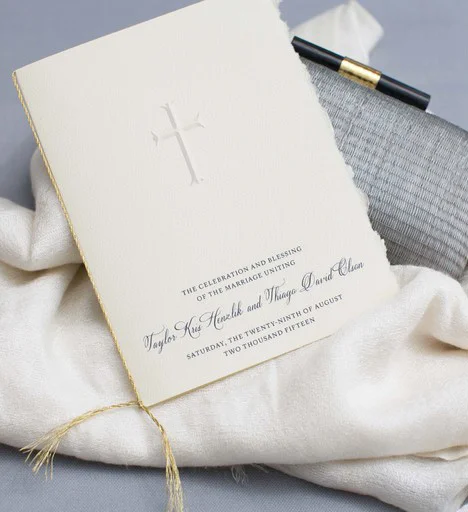 THE CELEBRATION AND BLESSING
OF THE MARRIAGE UNITING
Taylor Kris Henzlik and Thiago David Olson
SATURDAY, THE TWENTY-NINTH OF AUGUST
TWO THOUSAND FIFTEEN